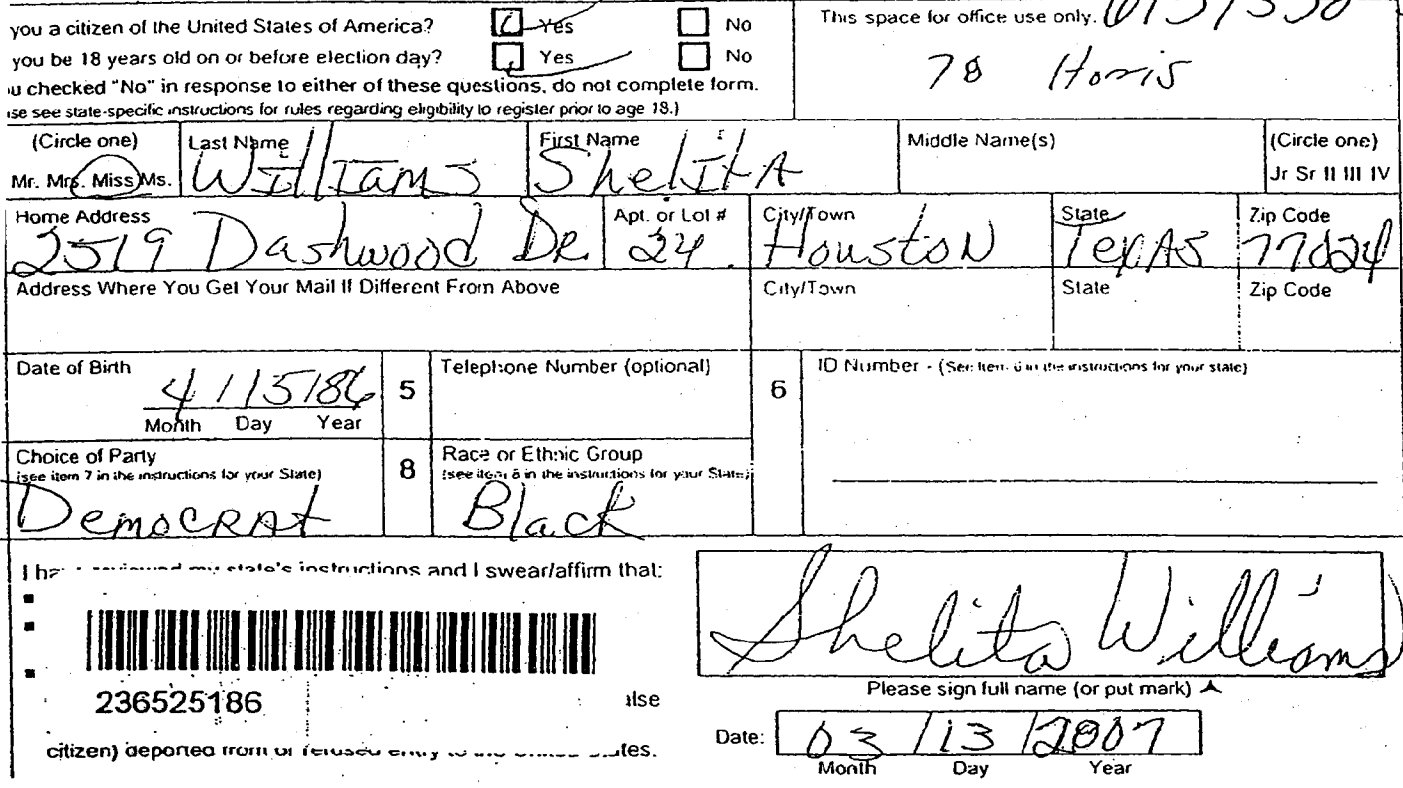 you a citizen of the United States of America? Yes No
you be 18 years old on or before election day? Yes No
u checked "No" in response to either of these questions, do not complete form.
ise see state-specific instructions for rules regarding eligibility to register prior to age 18.)
This space for office use only.
78 Harris
(Circle one)
Mr. Mrs. Miss Ms.
Last Name
Williams
First Name
Shelita
Middle Name(s)
(Circle one)
Jr Sr II III IV
Home Address
2519 Dashwood DR.
Apt. or Lot #
24
City/Town
Houston
State
Texas
Zip Code
Address Where You Get Your Mail If Different From Above
City/Town
State
Zip Code
Date of Birth
4/15/86
Month Day Year
5
Telephone Number (optional)
6
ID Number - (See Item 6 in the instructions for your state)
Choice of Party
(see item 7 in the instructions for your State)
Democrat
8
Race or Ethnic Group
(see item 8 in the instructions for your State)
Black
I have reviewed my state's instructions and I swear/affirm that:
236525186
alse
citizen) deported from or refused entry to the United States.
Shelita Williams
Please sign full name (or put mark)
Date: 03/13/2007
Month Day Year